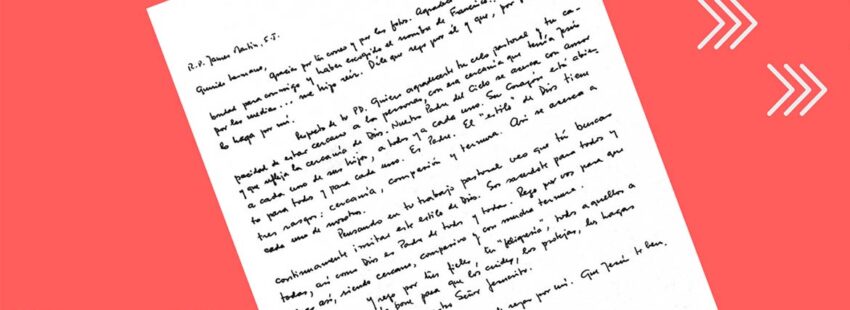 R.P. James Martin, S.J.
Querido hermano,
Gracias por tu correo y por las fotos.
bondad para conmigo y haber escogido el nombre de Francisco...
por las medias... me hizo reir. Dile que rezo por él y que, por
lo haga por mí.
Respecto de tu P.D. Quiero agradecerte tu celo pastoral y tu ca-
pacidad de estar cercano a las personas con esa cercanía que tenía Jesús
y que refleja la cercanía de Dios. Nuestro Padre del Cielo se acerca con amor
a cada uno de sus hijos, a todos y a cada uno. Su corazón está abier-
to para todos y para cada uno. Es Padre. El "estilo" de Dios tiene
tres rasgos: cercanía, compasión y ternura. Así se acerca a
cada uno de nosotros.
Pensando en tu trabajo pastoral veo que tú buscas
continuamente imitar este estilo de Dios. Sos sacerdote para todos y
todas, así como Dios es Padre de todos y todas. Rezo por vos para que
así, siendo cercano, compasivo y con mucha ternura.
Y rezo por tus fieles, tu "feligresía", todos aquellos a
pone para que los cuides, los protejas, los hagas
Señor Jesucristo.
de rezar por mí. Que Jesús te ben